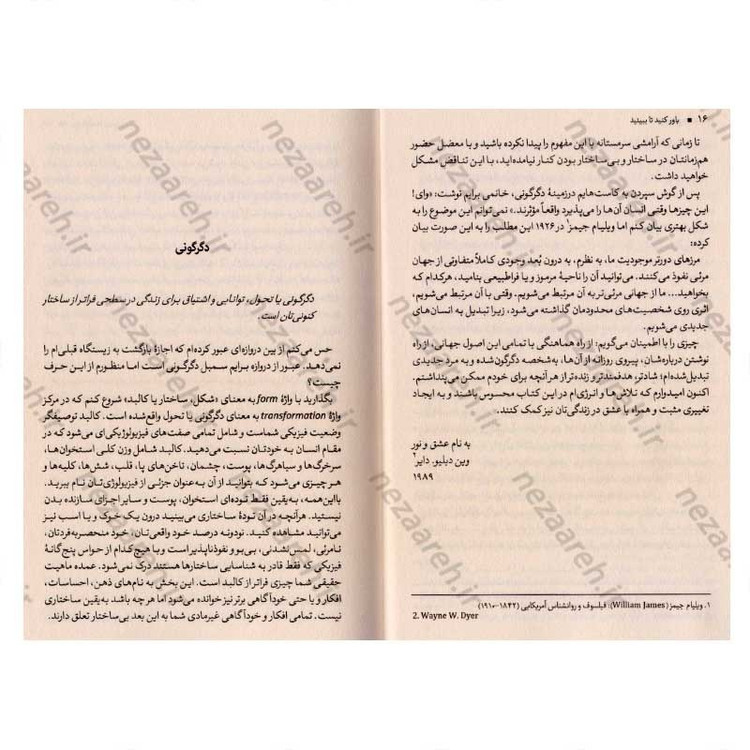 ۱۶ ■ باور کنید تا ببینید
تا زمانی که آرامشی سرمستانه با این مفهوم را پیدا نکرده باشید و با معضل حضور
هم‌زمانتان در ساختار و بی‌ساختار بودن کنار نیامده‌اید، با این تناقض مشکل
خواهید داشت.
پس از گوش سپردن به کاست‌هایم درزمینهٔ دگرگونی، خانمی برایم نوشت: «وای!
این چیزها وقتی انسان آن‌ها را می‌پذیرد واقعاً مؤثرند.» نمی‌توانم این موضوع را به
شکل بهتری بیان کنم اما ویلیام جیمز۱ در ۱۹۲۶ این مطلب را به این صورت بیان
کرده:
مرزهای دورتر موجودیت ما، به نظرم، به درون بُعد وجودی کاملاً متفاوتی از جهان
مرئی نفوذ می‌کنند. می‌توانید آن را ناحیهٔ مرموز و یا فراطبیعی بنامید، هرکدام که
بخواهید... ما از جهانی مرئی‌تر به آن مرتبط می‌شویم. وقتی با آن مرتبط می‌شویم،
اثری روی شخصیت‌های محدودمان گذاشته می‌شود، زیرا تبدیل به انسان‌های
جدیدی می‌شویم.
چیزی را با اطمینان می‌گویم: از راه هماهنگی با تمامی این اصول جهانی، از راه
نوشتن درباره‌شان، پیروی روزانه از آن‌ها، به‌شخصه دگرگون‌شده و به مرد جدیدی
تبدیل‌شده‌ام؛ شادتر، هدفمندتر و زنده‌تر از هر آنچه برای خودم ممکن می‌پنداشتم.
اکنون امیدوارم که تلاش‌ها و انرژی‌ام در این کتاب محسوس باشند و به ایجاد
تغییری مثبت و همراه با عشق در زندگی‌تان نیز کمک کنند.
به نام عشق و نور
وین دبلیو. دایر۲
۱۹۸۹
۱. ویلیام جیمز (William James): فیلسوف و روانشناس آمریکایی (۱۸۴۲-۱۹۱۰)
2. Wayne W. Dyer
دگرگونی
دگرگونی یا تحول، توانایی و اشتیاق برای زندگی در سطحی فراتر از ساختار
کنونی‌تان است.
حس می‌کنم از بین دروازه‌ای عبور کرده‌ام که اجازهٔ بازگشت به زیستگاه قبلی‌ام را
نمی‌دهد. عبور از دروازه برایم سمبل دگرگونی است اما منظورم از این حرف
چیست؟
بگذارید با واژهٔ form به معنای «شکل، ساختار یا کالبد» شروع کنم که در مرکز
واژهٔ transformation به معنای دگرگونی یا تحول واقع‌شده است. کالبد توصیفگر
وضعیت فیزیکی شماست و شامل تمامی صفت‌های فیزیولوژیکی‌ای می‌شود که در
مقام انسان به خودتان نسبت می‌دهید. کالبد شامل وزن کلی استخوان‌ها،
سرخرگ‌ها و سیاهرگ‌ها، پوست، چشمان، ناخن‌های پا، قلب، شش‌ها، کلیه‌ها و
هر چیزی می‌شود که بتوانید از آن به‌عنوان جزئی از فیزیولوژی‌تان نام ببرید.
بااین‌همه، به‌یقین فقط توده‌ای استخوان، پوست و سایر اجزای سازنده بدن
نیستید. هرآنچه در آن تودهٔ ساختاری می‌بینید درون یک خوک و یا اسب نیز
می‌توانید مشاهده کنید. نودونه درصد خود واقعی‌تان، خود منحصربه‌فردتان،
نامرئی، لمس‌نشدنی، بی‌بو و نفوذناپذیر است و با هیچ‌کدام از حواس پنج‌گانهٔ
فیزیکی که فقط قادر به شناسایی ساختارها هستند درک نمی‌شود. عمده ماهیت
حقیقی شما چیزی فراتر از کالبد است. این بخش به نام‌های ذهن، احساسات،
افکار و یا حتی خودآگاهی برتر نیز خوانده می‌شود اما هر چه باشد به‌یقین ساختاری
نیست. تمامی افکار و خودآگاهی غیرمادی شما به این بعد بی‌ساختار تعلق دارند.
nezaareh.ir